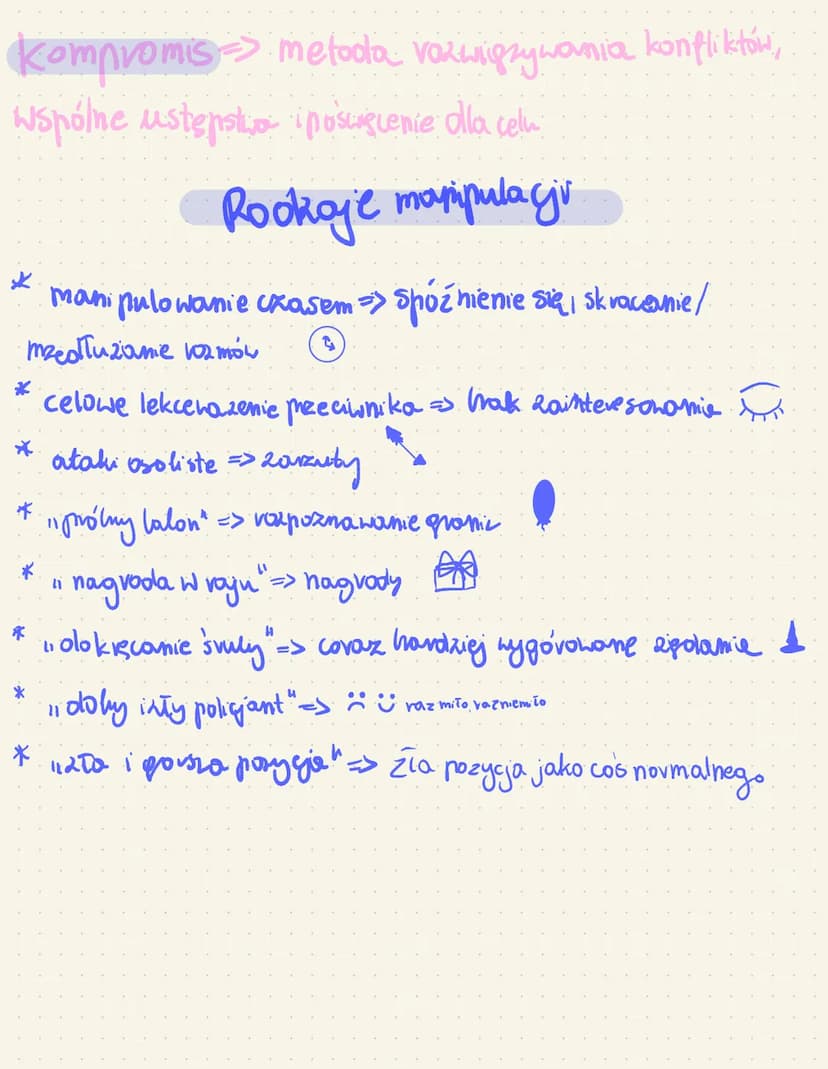 kompromis => metoda rozwiązywania konfliktów,
wspólne ustępstwa i poświęcenie dla celu
Rodzaje manipulacji
* manipulowanie czasem => spóźnienie się, skracanie/
przedłużanie rozmów
* celowe lekceważenie przeciwnika => brak zainteresowania
* ataki osobiste => zarzuty
* „próbny balon" => rozpoznawanie granic
* „nagroda w raju" => nagrody
* „dokręcanie śruby" => coraz bardziej wygórowane żądania
* „dobry i zły policjant" => :( :) raz miło, raz niemiło
* „zła i gorsza pozycja" => zła pozycja jako coś normalnego